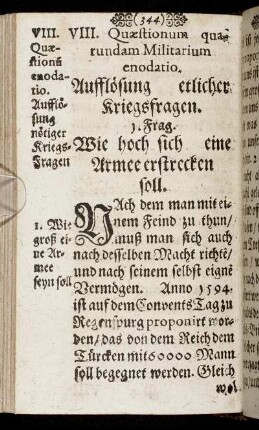 (344)
VIII. Quæstionum qua-
rundam Militarium
enodatio.
Aufflösung etlicher
Kriegsfragen.
1. Frag.
Wie hoch sich eine
Armee erstrecken
soll.
NAch dem man mit ei-
nem Feind zu thun/
muß man sich auch
nach desselben Macht richtē/
und nach seinem selbst eignē
Vermögen. Anno 1594.
ist auf dem Convents Tag zu
Regenspurg proponirt wor-
den/das von dem Reich dem
Türcken mit 60000 Mann
soll begegnet werden. Gleich
wol
VIII.
Quæ-
stionū
enoda-
tio.
Aufflö-
sung
nötiger
Kriegs-
Fragen
1. Wie
groß ei-
ne Ar-
mee
seyn soll